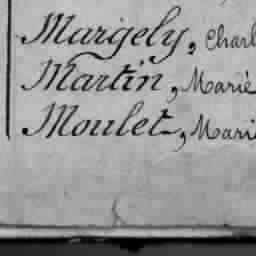 Margely, Charl
Martin, Marie
Moulet, Mari